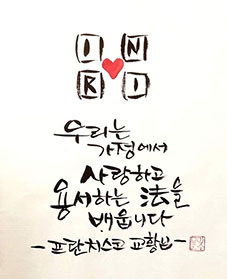 I N
R I
우리는
가정에서
사랑하고
용서하는 法을
배웁니다
- 프란치스코 교황님 -